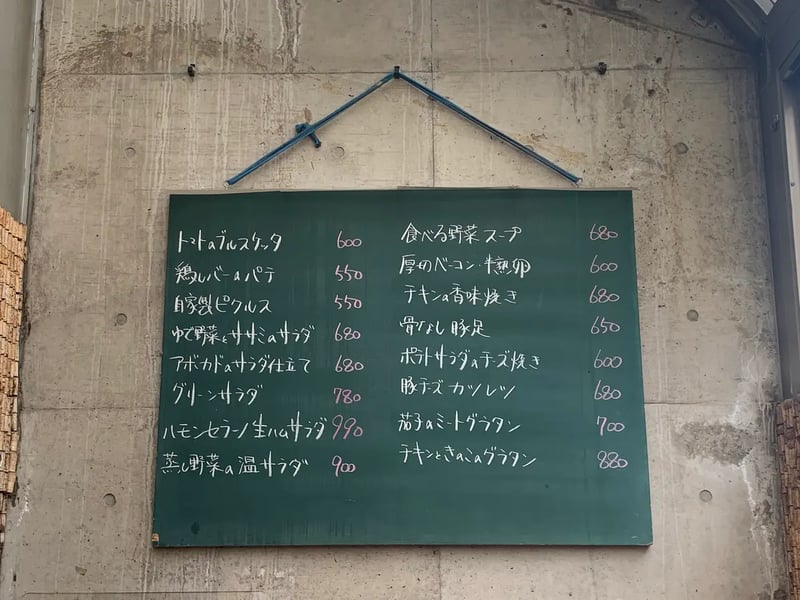 トマトのブルスケッタ 600
鶏レバーのパテ 550
自家製ピクルス 550
ゆで野菜とササミのサラダ 680
アボカドのサラダ仕立て 680
グリーンサラダ 780
ハモンセラーノ生ハムサラダ 990
蒸し野菜の温サラダ 900
食べる野菜スープ 680
厚めベーコン・半熟卵 600
チキンの香味焼き 680
骨なし豚足 650
ポテトサラダのチーズ焼き 600
豚チーズカツレツ 680
茄子のミートグラタン 700
チキンときのこのグラタン 880